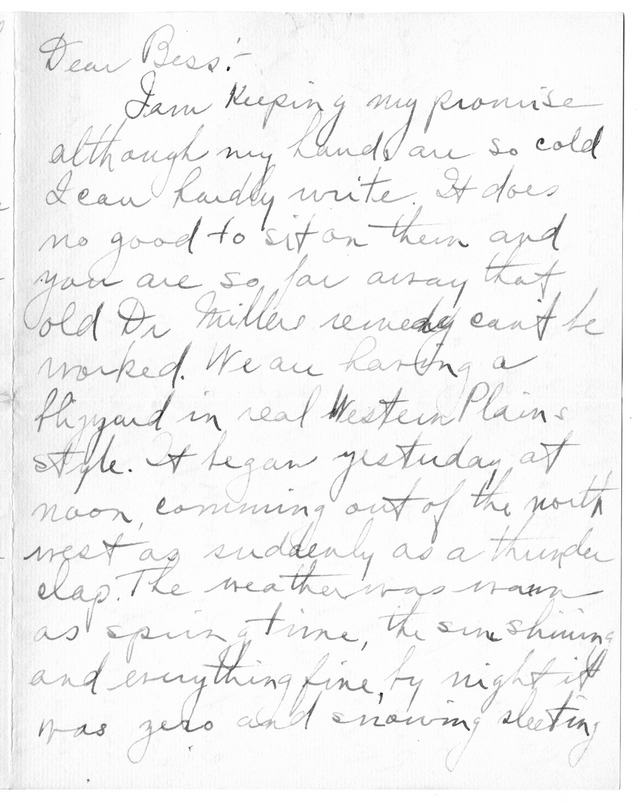 Dear Bess:-
I am keeping my promise
although my hands are so cold
I can hardly write. It does
no good to sit on them and
you are so far away that
old Dr Millers remedy can't be
worked. We are having a
blizzard in real Western Plains
style. It began yesterday at
noon, comming out of the north
west as suddenly as a thunder
clap. The weather was warm
as spring time, the sun shining
and everything fine, by night it
was zero and snowing sleeting